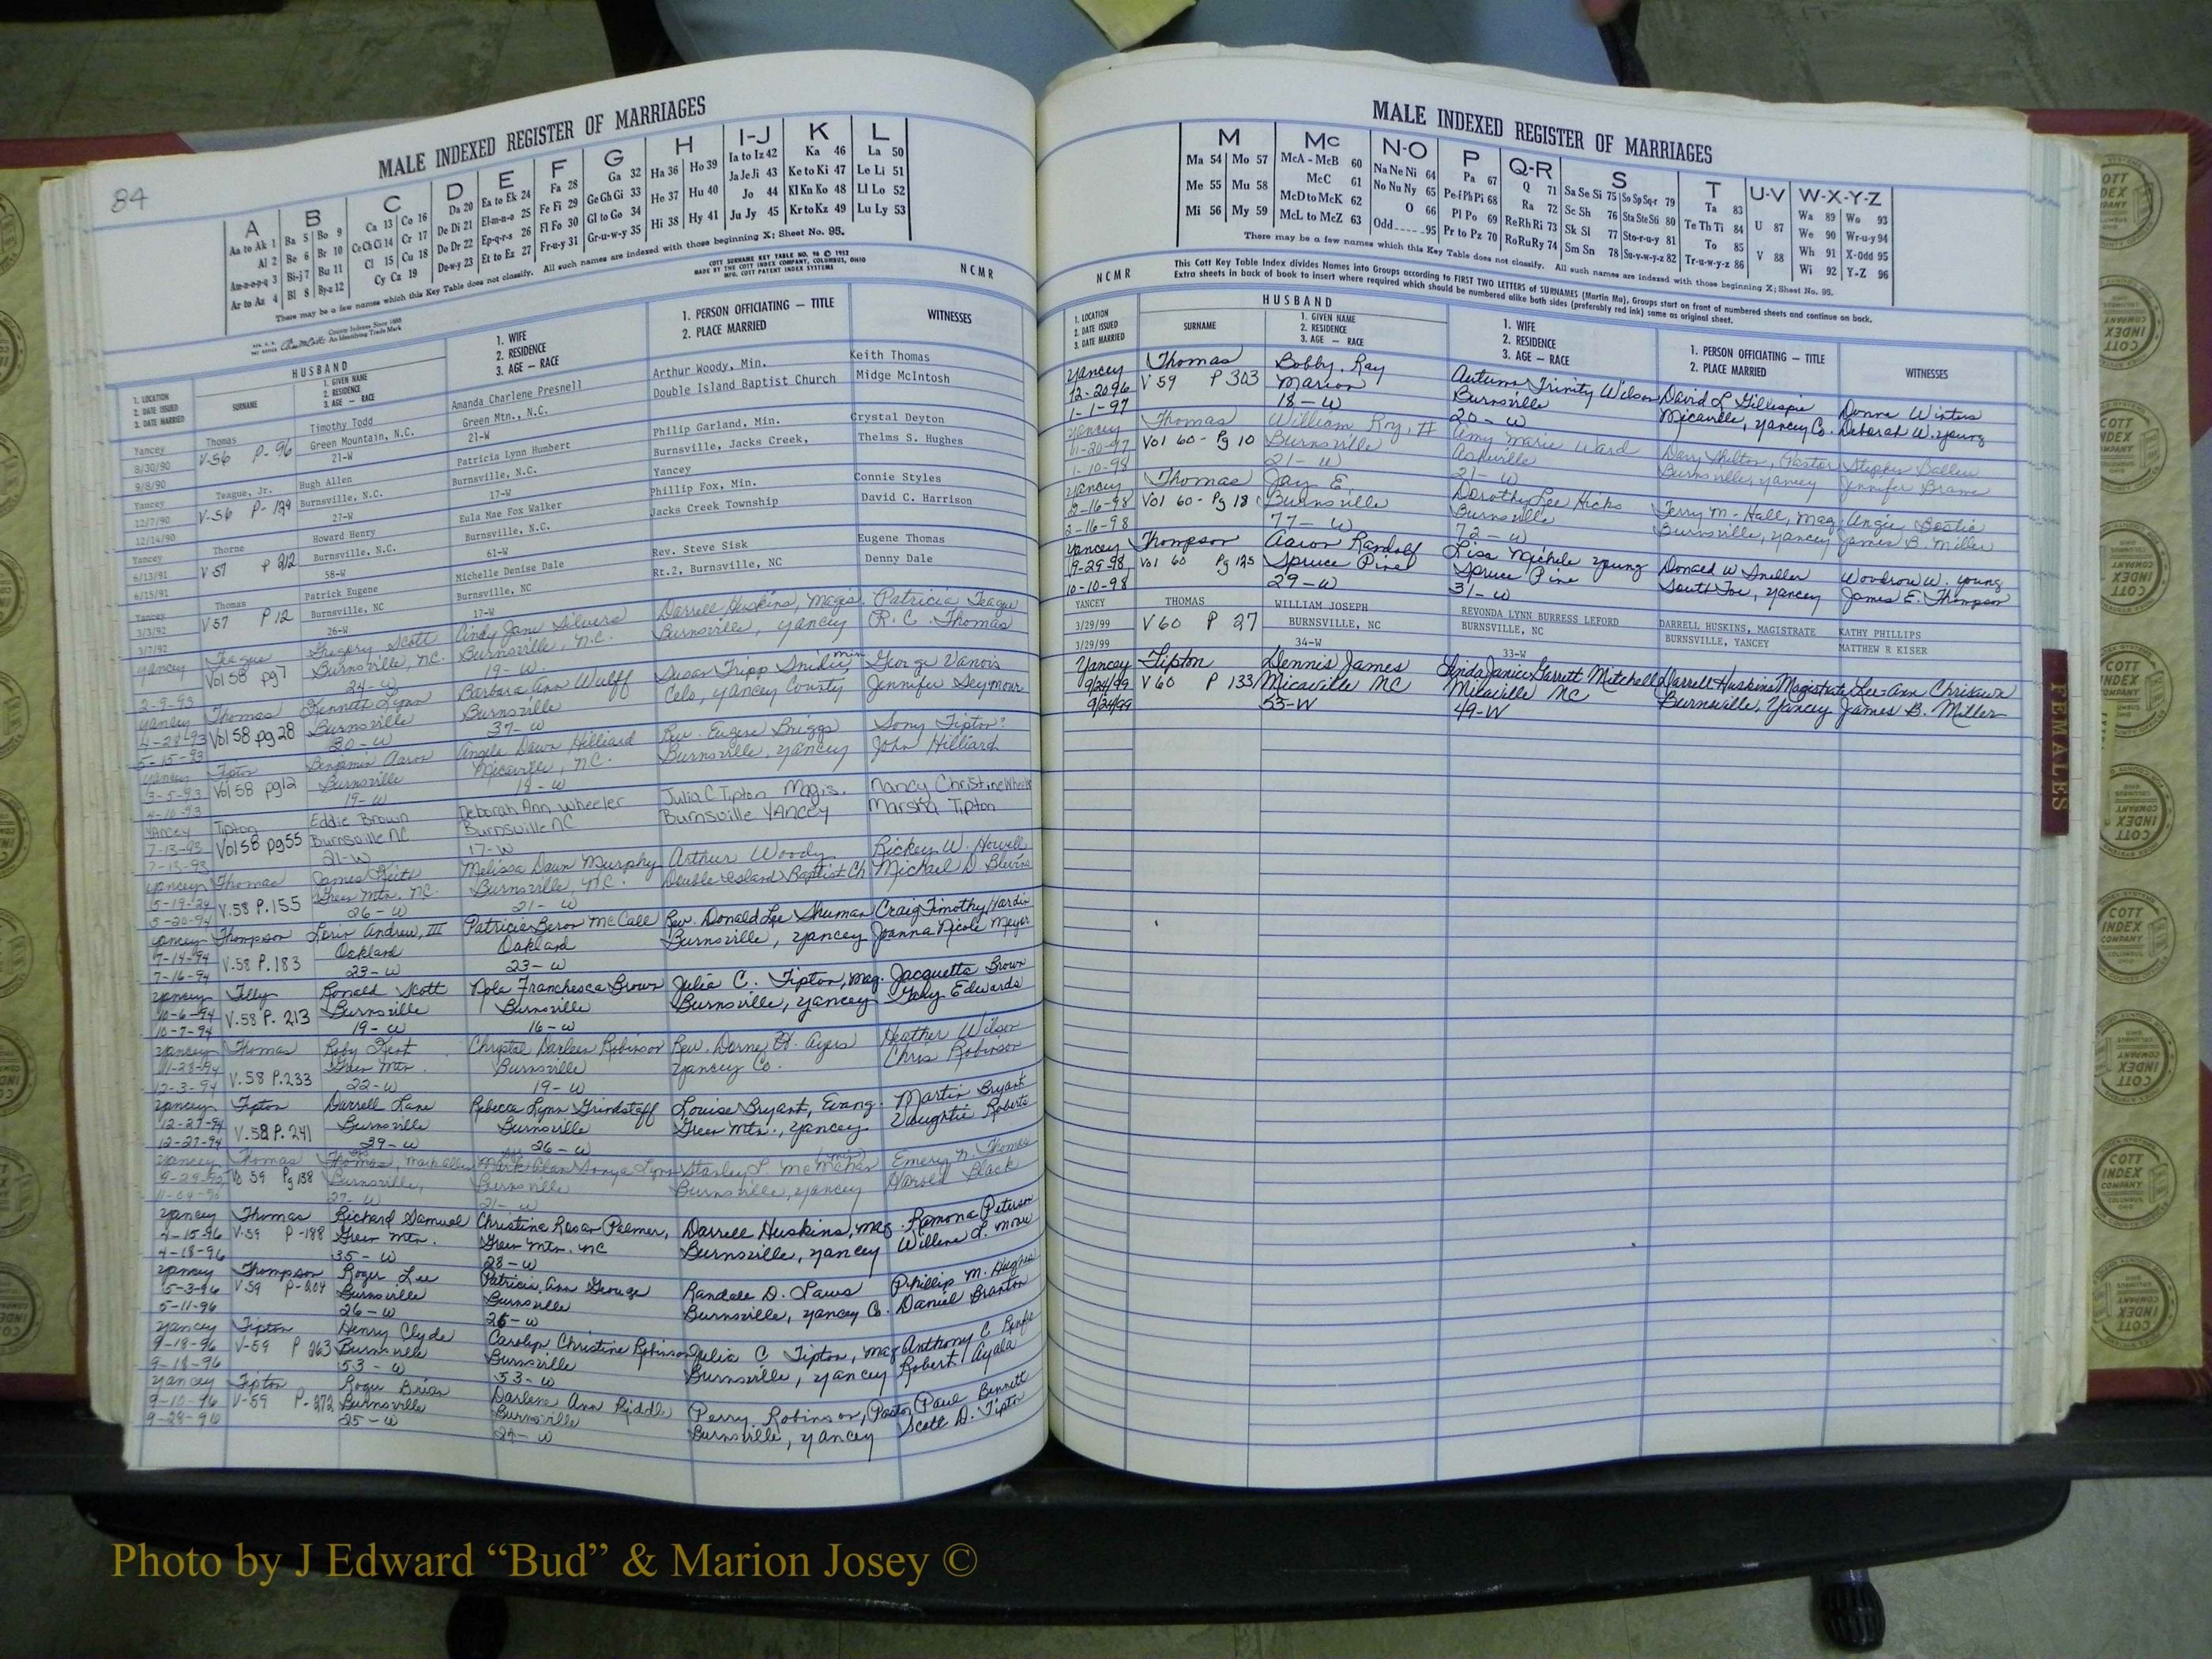 84
MALE INDEXED REGISTER OF MARRIAGES
A B C D E F G H I-J K L
Aa to Ak 1 Ba 5 Bo 9 Ca 13 Co 16 Da 20 Ea to Ek 24 Fa 28 Ga 32 Ha 36 Ho 39 Ia to Iz 42 Ka 46 La 50
Al 2 Be 6 Br 10 Ce Ch Ci 14 Cr 17 De Di 21 El-m-n-o 25 Fe Fi 29 Ge Gh Gi 33 He 37 Hu 40 Ja Je Ji 43 Ke to Ki 47 Le Li 51
Am-n-o-p-q 3 Bi-j 7 Bu 11 Cl 15 Cu 18 Do Dr 22 Ep-q-r-s 26 Fl Fo 30 Gl to Go 34 Hi 38 Hy 41 Jo 44 Kl Kn Ko 48 Ll Lo 52
Ar to Az 4 Bl 8 By-z 12 Cy Cz 19 Du-w-y 23 Et to Ez 27 Fr-u-y 31 Gr-u-w-y 35 Ju Jy 45 Kr to Kz 49 Lu Ly 53
There may be a few names which this Key Table does not classify. All such names are indexed with those beginning X; Sheet No. 95.
COTT SURNAME KEY TABLE NO. 96 © 1952
MADE BY THE COTT INDEX COMPANY, COLUMBUS, OHIO
MFG. COTT PATENT INDEX SYSTEMS
NCMR
County Indexes Since 1888
An Identifying Trade Mark
1. LOCATION
2. DATE ISSUED
3. DATE MARRIED
HUSBAND
SURNAME
1. GIVEN NAME
2. RESIDENCE
3. AGE — RACE
1. WIFE
2. RESIDENCE
3. AGE — RACE
1. PERSON OFFICIATING — TITLE
2. PLACE MARRIED
WITNESSES
Yancey Thomas Timothy Todd Amanda Charlene Presnell Arthur Woody, Min. Keith Thomas
8/30/90 V-56 P-96 Green Mountain, N.C. Green Mtn., N.C. Double Island Baptist Church Midge McIntosh
9/8/90 21-W 21-W
Yancey Teague, Jr. Hugh Allen Patricia Lynn Humbert Philip Garland, Min. Crystal Deyton
12/7/90 V-56 P-129 Burnsville, N.C. Burnsville, N.C. Burnsville, Jacks Creek, Thelms S. Hughes
12/14/90 27-W 17-W Yancey
Yancey Thorne Howard Henry Eula Mae Fox Walker Phillip Fox, Min. Connie Styles
6/13/91 V 57 P 212 Burnsville, N.C. Burnsville, N.C. Jacks Creek Township David C. Harrison
6/15/91 58-W 61-W
Yancey Thomas Patrick Eugene Michelle Denise Dale Rev. Steve Sisk Eugene Thomas
3/3/92 V57 P 12 Burnsville, NC Burnsville, NC Rt.2, Burnsville, NC Denny Dale
3/7/92 26-W 17-W
Yancey Teague Gregory Scott Cindy Jane Silvers Darrell Huskins, Magis. Patricia Teague
Vol 58 pg 7 Burnsville, NC. Burnsville, N.C. Burnsville, Yancey R. C. Thomas
2-9-93 24-W 19-W
Yancey Thomas Kennett Lynn Barbara Ann Wulff Susan Tripp Snider min George Vanois
4-28-93 Vol 58 pg 28 Burnsville Burnsville Celo, Yancey County Jennifer Seymour
5-15-93 30-W 37-W
Yancey Tipton Benjamin Aaron Angela Dawn Hilliard Rev. Eugene Briggs Sony Tipton?
3-5-93 Vol 58 pg12 Burnsville Micaville, N.C. Burnsville, Yancey John Hilliard
4-10-93 19-W 19-W
Yancey Tipton Eddie Brown Deborah Ann Wheeler Julia C Tipton Magis. Nancy Christine Wheeler
7-13-93 Vol 58 pg 55 Burnsville NC Burnsville NC Burnsville Yancey Marsha Tipton
7-13-93 21-W 17-W
Yancey Thomas James Keith Melissa Dawn Murphy Arthur Woody Rickey W. Howell
5-19-94 V.58 P.155 Green Mtn. NC. Burnsville, NC. Double Island Baptist Ch Michael D Blevins
5-20-94 26-W 21-W
Yancey Thompson Lorin Andrew, III Patricia Beron McCall Rev. Donald Lee Shuman Craig Timothy Hardin
7-14-94 V.58 P.183 Oakland Oakland Burnsville, Yancey Joanna Nicole Meyer
7-16-94 23-W 23-W
Yancey Tilly Ronald Scott Nola Franchesca Brown Julia C. Tipton, Mag. Jacquetta Brown
10-6-94 V.58 P. 213 Burnsville Burnsville Burnsville, Yancey Gary Edwards
10-7-94 19-W 16-W
Yancey Thomas Roby Kent Chrystal Darleen Robinson Rev. Dorne H. Ayers Heather Wilson
11-28-94 V.58 P.233 Green Mtn. Burnsville Yancey Co. Chris Robinson
12-3-94 22-W 19-W
Yancey Tipton Darrell Lane Rebecca Lynn Grindstaff Louise Bryant, Evang. Martin Bryant
12-27-94 V.58 P.241 Burnsville Burnsville Green Mtn., Yancey Vaughtie Roberts
12-27-94 39-W 26-W
Yancey Thomas Thomas, Mark Allen Mark Alan Sonya Lynn Stanley L McMahan (min) Emery N. Thomas
9-29-95 Vo 59 Pg 138 Burnsville, Burnsville Burnsville, Yancey Harold Black
27-W 21-W
Yancey Thomas Richard Samuel Christina Rosar Palmer, Darrell Huskins, Mag. Ramona Peterson
4-15-96 V-59 P-188 Green Mtn. Green Mtn. NC Burnsville, Yancey Willene L. Moore
4-18-96 35-W 28-W
Yancey Thompson Roger Lee Patricia Ann George Randall D. Laws Phillip M. Hughes
5-3-96 V 59 P-204 Burnsville Burnsville Burnsville, Yancey Co. Daniel Branton
5-11-96 26-W 26-W
Yancey Tipton Henry Clyde Carolyn Christine Robinson Julia C Tipton, Mag Anthony C
9-18-96 V-59 P 263 Burnsville Burnsville Burnsville, Yancey Robert Ayala
9-18-96 53-W 53-W
Yancey Tipton Roger Brian Darlene Ann Riddle Perry Robinson, Pastor Paul Bennett
9-10-96 V-59 P-272 Burnsville Burnsville Burnsville, Yancey Scott D. Tipton
9-28-96 25-W 24-W
MALE INDEXED REGISTER OF MARRIAGES
M Mc N-O P Q-R S T U-V W-X-Y-Z
Ma 54 Mo 57 McA - McB 60 Na Ne Ni 64 Pa 67 Q 71 Sa Se Si 75 So Sp Sq-r 79 Ta 83 U 87 Wa 89 Wo 93
Me 55 Mu 58 McC 61 No Nu Ny 65 Pe-i Ph Pi 68 Ra 72 Sc Sh 76 Sta Ste Sti 80 Te Th Ti 84 We 90 Wr-u-y 94
Mi 56 My 59 McD to McK 62 O 66 Pl Po 69 Re Rh Ri 73 Sk Sl 77 Sto-r-u-y 81 To 85 V 88 Wh 91 X-Odd 95
McL to McZ 63 Odd 95 Pr to Pz 70 Ro Ru Ry 74 Sm Sn 78 Su-v-w-y-z 82 Tr-u-w-y-z 86 Wi 92 Y-Z 96
There may be a few names which this Key Table does not classify. All such names are indexed with those beginning X; Sheet No. 95.
NCMR
This Cott Key Table Index divides Names into Groups according to FIRST TWO LETTERS of SURNAMES (Martin Ma), Groups start on front of numbered sheets and continue on back.
Extra sheets in back of book to insert where required which should be numbered alike both sides (preferably red ink) same as original sheet.
1. LOCATION
2. DATE ISSUED
3. DATE MARRIED
HUSBAND
SURNAME
1. GIVEN NAME
2. RESIDENCE
3. AGE — RACE
1. WIFE
2. RESIDENCE
3. AGE — RACE
1. PERSON OFFICIATING — TITLE
2. PLACE MARRIED
WITNESSES
Yancey Thomas Bobby Ray Autumn Trinity Wilson David L Gillespie Donna Winters
12-20-96 V 59 P 303 Marion Burnsville Micaville, Yancey Co. Deborah W. Young
1-1-97 18-W 20-W
Yancey Thomas William Roy, II Amy Marie Ward Dary Shelton, Pastor Stephen Ballew
11-20-97 Vol 60- Pg 10 Burnsville Asheville Burnsville, Yancey Jennifer Brame
1-10-98 21-W 21-W
Yancey Thomas Jay E. Dorothy Lee Hicks Terry M. Hall, Mag. Angie Bostic
2-16-98 Vol 60- Pg 18 Burnsville Burnsville Burnsville, Yancey James B. Miller
2-16-98 77-W 72-W
Yancey Thompson Aaron Randolf Lisa Michele Young Donald W Sneller Woodrow W. Young
9-29-98 Vol 60 Pg 125 Spruce Pine Spruce Pine South Toe, Yancey James E. Thompson
10-10-98 29-W 31-W
YANCEY THOMAS WILLIAM JOSEPH REVONDA LYNN BURRESS LEFORD DARRELL HUSKINS, MAGISTRATE KATHY PHILLIPS
3/29/99 V 60 P 27 BURNSVILLE, NC BURNSVILLE, NC BURNSVILLE, YANCEY MATTHEW R KISER
3/29/99 34-W 33-W
Yancey Tipton Dennis James Linda Janice Garrett Mitchell Darrell Huskins Magistrate Lee-Ann Chrisawn
9/24/99 V 60 P 133 Micaville NC Micaville NC Burnsville, Yancey James B. Miller
9/24/99 53-W 49-W
FEMALES
COTT
INDEX
COMPANY
OHIO
Photo by J Edward “Bud” & Marion Josey ©